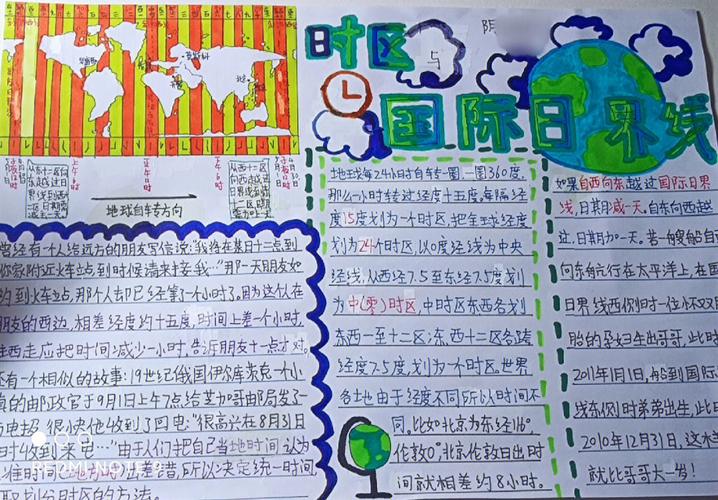 时区
与
国际日界线
从东十二区向
东越过日
界线到西
十二区日期
减去一天
从西十二区
向西越过
日界线到
东十二区
地球自转方向
曾经有个人给远方的朋友写信说:"我将在某日十一点到
你就附近火车站,到时候请来接我…"那一天朋友如
约到火车站,那个人却已经等了一个小时了。因为这个人在
朋友的西边,相差经度约十五度,时间上差一个小时
往西走应把时间减少一小时,告诉朋友十一点才对。
还有一个相似的故事:19世纪俄国伊尔库茨克一个小
镇的邮政官于9月1日上午7点给芝加哥邮局发了
电报,很快他收到了回电:"很高兴在8月31日
时收到来电…"由于人们把自己当地时间认为
准时间
出差错,所以决定统一时间
取划分时区的方法。
地球每24小时自转一圈,一圈360度,
那么一小时转过经度十五度,每隔经
度15度划为一个时区,把全球经度
划为24个时区,以0度经线为中央
经线,从西经7.5至东经7.5度划
为中(零)时区,中时区东西各划
东西一至十二区;东、西十二区各跨
经度7.5度,划为一个时区。世界
各地由于经度不同,所以时间不
同。比如北京为东经116°,
伦敦0°,北京伦敦日出时
间就相差约8小时。
如果自西向东越过国际日界
线,日期减一天。自东向西越
过,日期加一天。若一艘船自西
向东航行在太平洋上,在国
日界线西侧时一位怀双胞
胎的孕妇生出哥哥,此时
2011年1月1日,船到国际
线东侧时弟弟出生,此日
2010年12月31日,这本
就比哥哥大一岁!
REDMI NOTE 9